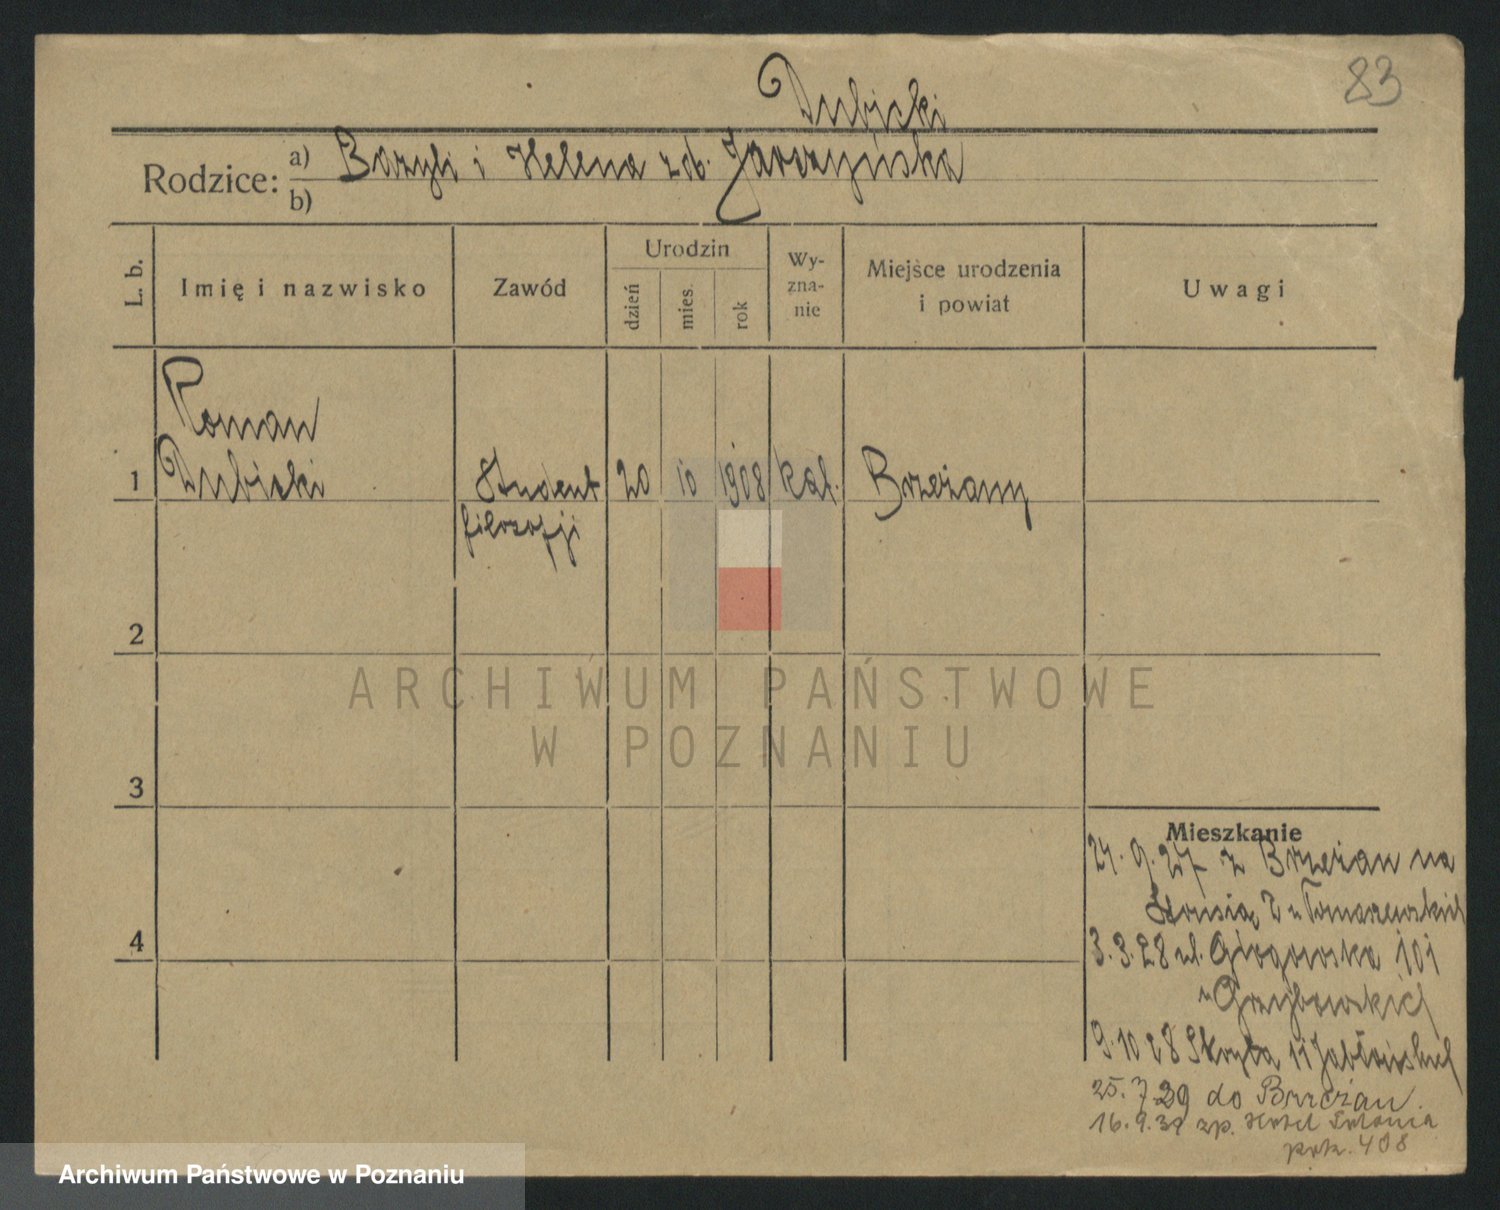 83
Dubicki
Rodzice: a) Bazyli i Helena zd. Jarczyńska
b)
L. b. Imię i nazwisko Zawód Urodzin dzień mies. rok Wy-zna-nie Miejsce urodzenia i powiat Uwagi
Roman
1 Dubicki Student 20 10 1908 kat. Brzeżany
filozofji
2
ARCHIWUM PAŃSTWOWE
W POZNANIU
3
Mieszkanie
27. 9. 27 z Brzeżan na
u Tomaszewskich
4
3. 3. 28 ul. Głogowska 101
u Grzybowskich
9. 10 28 Skryta 11 Jabłońskich
25. 7. 29 do Brzeżan.
16. 9. 39 zp. Hotel Polonia
pok. 408
Archiwum Państwowe w Poznaniu